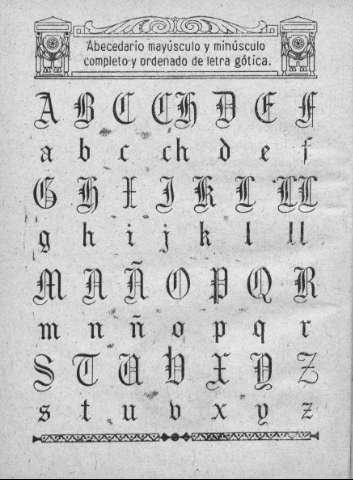 Abecedario mayúsculo y minúsculo
completo y ordenado de letra gótica.
A B C CH D E F
a b c ch d e f
G H I J K L LL
g h i j k l ll
M N Ñ O P Q R
m n ñ o p q r
S T U V X Y Z
s t u v x y z